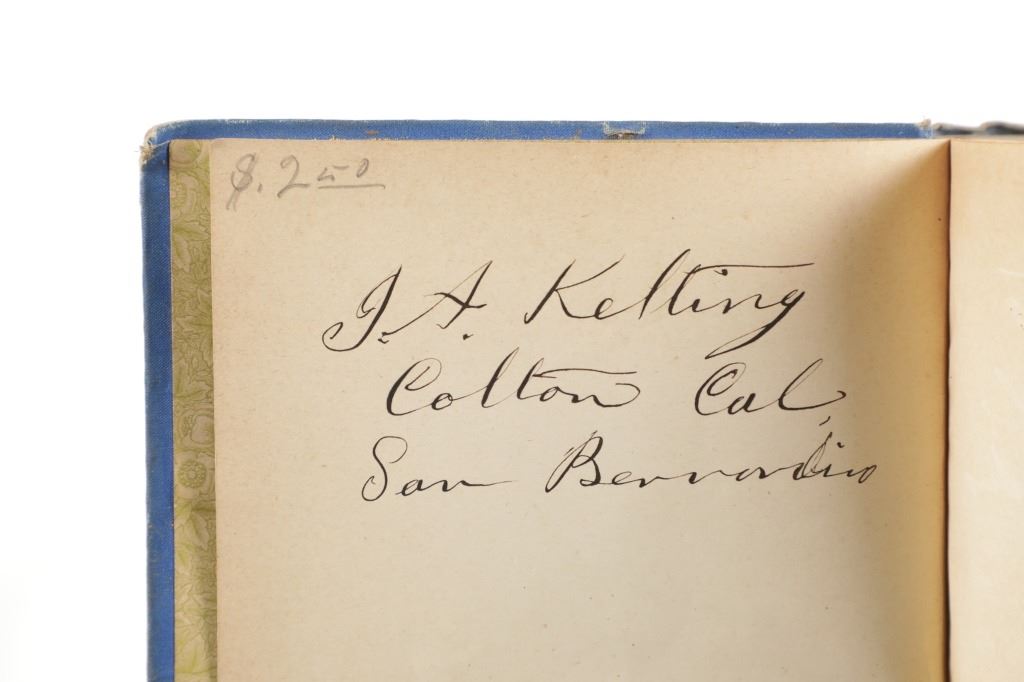 $. 2 50
J. A. Kelting
Colton Cal,
San Bernardino